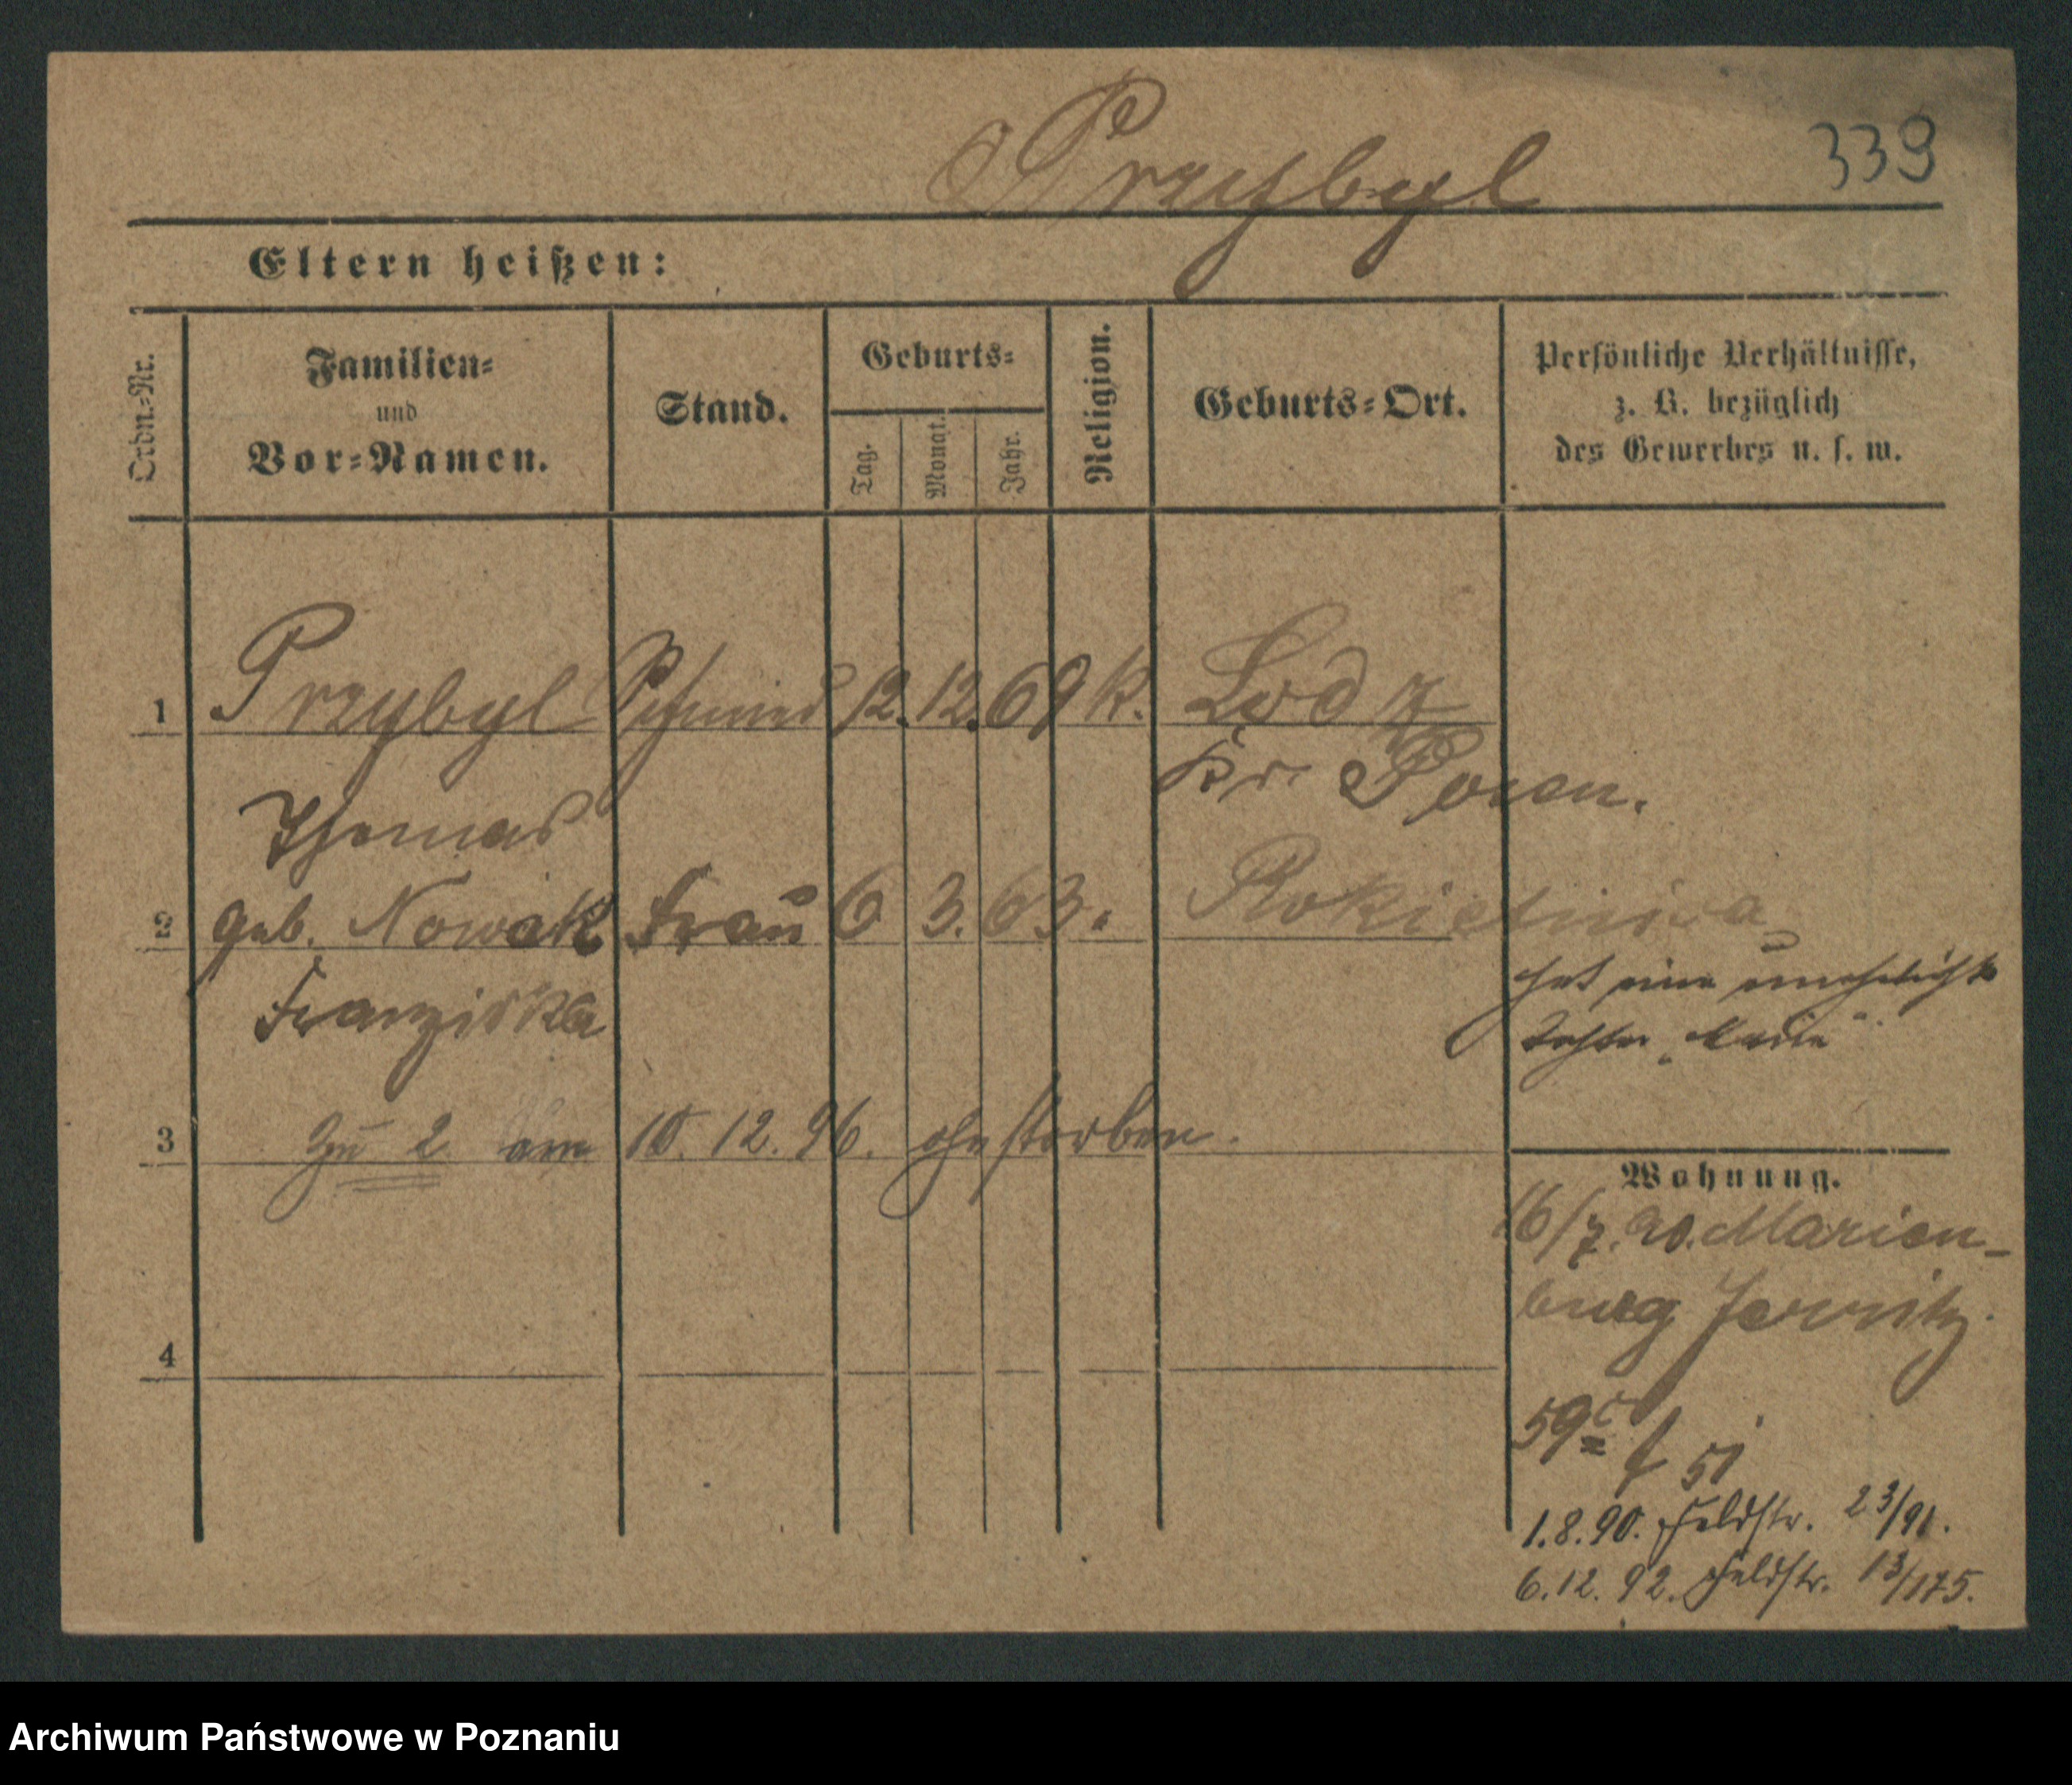 Przybyl
339
Eltern heißen:
Ordn.-Nr.
Familien-
und
Vor-Namen.
Stand.
Geburts-
Tag.
Monat.
Jahr.
Religion.
Geburts-Ort.
Persönliche Verhältnisse,
z. B. bezüglich
des Gewerbes u. s. w.
1 Przybyl Schmied 12. 12. 69 k. Lodz
Kr. Posen.
Thomas
2 geb. Nowak Frau 6 3. 63. Rokietnica
Franziska
hat eine uneheliche
Tochter „Marie“
3 Zu 2 am 10. 12. 96. gestorben.
Wohnung.
16/7. 90. Marien-
burg Jersitz.
59c
51
4
1.8.90. Feldstr. 23/91.
6.12.92. Feldstr. 13/175.
Archiwum Państwowe w Poznaniu